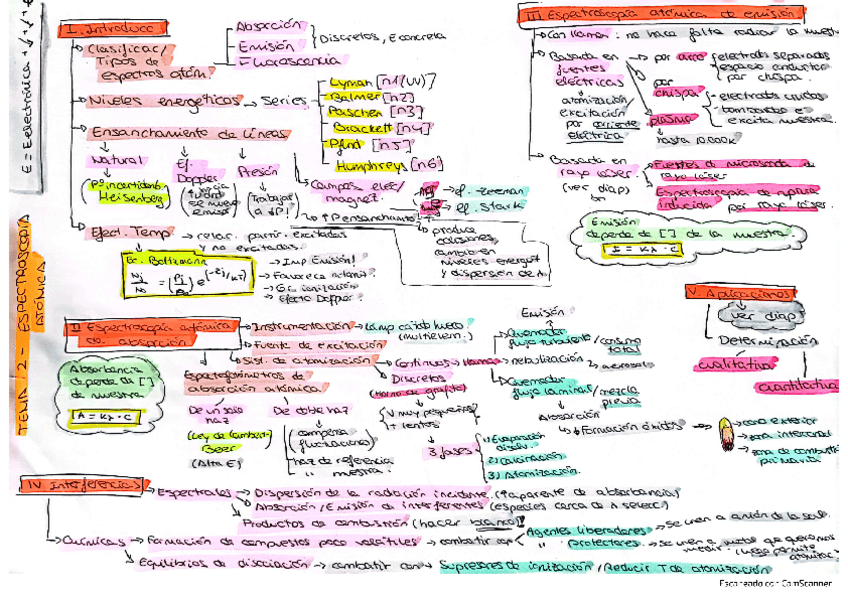 E = Eelectrónica +
TEMA 2 - ESPECTROSCOPIA ATÓMICA
I. Introducc
Clasificac/
Tipos de
espectros atóm.
Absorción
Emisión
Fluorescencia
Discretos, E concreta
Niveles energéticos → Series
Lyman [n1 (UV)]
Balmer [n2]
Paschen [n3]
Brackett [n4]
Pfund [n5]
Humphreys [n6]
Ensanchamiento de líneas
Natural
(Pº incertidumb
Heisenberg)
Ef.
Doppler
Presión
(Trabajar
a ↓P!)
Campos elec/
magnet.
ef. Zeeman
ef. Stark
↑P ensanchamiento
produce
colisiones,
cambio en
niveles energét
y dispersión de λ.
Efect. Temp → relac. partíc. excitadas
y no excitadas.
Ec. Boltzmann
→ Imp Emisión!
→ Favorece atomiz.
→ Ga ionización
→ Efecto Doppler
II Espectroscopía atómica
de absorción
Absorbancia
depende de [ ]
de muestra
A = Kλ · C
Instrumentación → Lámp cátodo hueco
(multielem.)
Fuente de excitación
Sist. de atomización
Continuos → Llamas
Discretos
(Horno de grafito)
V muy pequeños
+ lentos
3 fases
1) Evaporación
disolv.
2) Calcinación
3) Atomización.
nebulización
aerosol
Emisión
Quemador
flujo turbulento / consumo
total
Quemador
flujo laminar / mezcla
previa
Absorción
Formación óxidos
cono exterior
zona interconal
zona de combustión
primaria
Espectrofotómetros de
absorción atómica.
De un solo
haz
(Ley de Lambert-
Beer
(Alta E)
De doble haz
(compensa
fluctuaciones)
haz de referencia
" muestra.
III Espectroscopía atómica de emisión
Con llama: no hace falta radiar la muestra
Basada en
fuentes
eléctricas
atomización/
excitación
por corriente
eléctrica
por arco
electrodos separados
espacio conductor
por chispa.
por
chispa
electrodos unidos
plasma
excita muestra.
hasta 10.000K
Basada en
rayo láser.
(ver diap)
Fuentes de microsonda de
rayo láser
Espectroscopía de ruptura
inducida por rayo láser.
Emisión
depende de [ ] de la muestra
I = Kλ · C
V. Aplicaciones
ver diap
Determinación
cualitativa
cuantitativa
IV Interferencias
Espectrales → Dispersión de la radiación incidente. (↑ aparente de absorbancia)
Absorción / Emisión de interferentes (especies cerca de λ selecc)
Productos de combustión (hacer blanco)
Químicas → Formación de compuestos poco volátiles → combatir con
Agentes liberadores → Se unen a anión de la sal.
" protectores. → se unen a metal que queremos
medir (luego permite
atomizac
Equilibrios de disociación → combatir con → Supresores de ionización / Reducir T de atomización
Escaneado con CamScanner